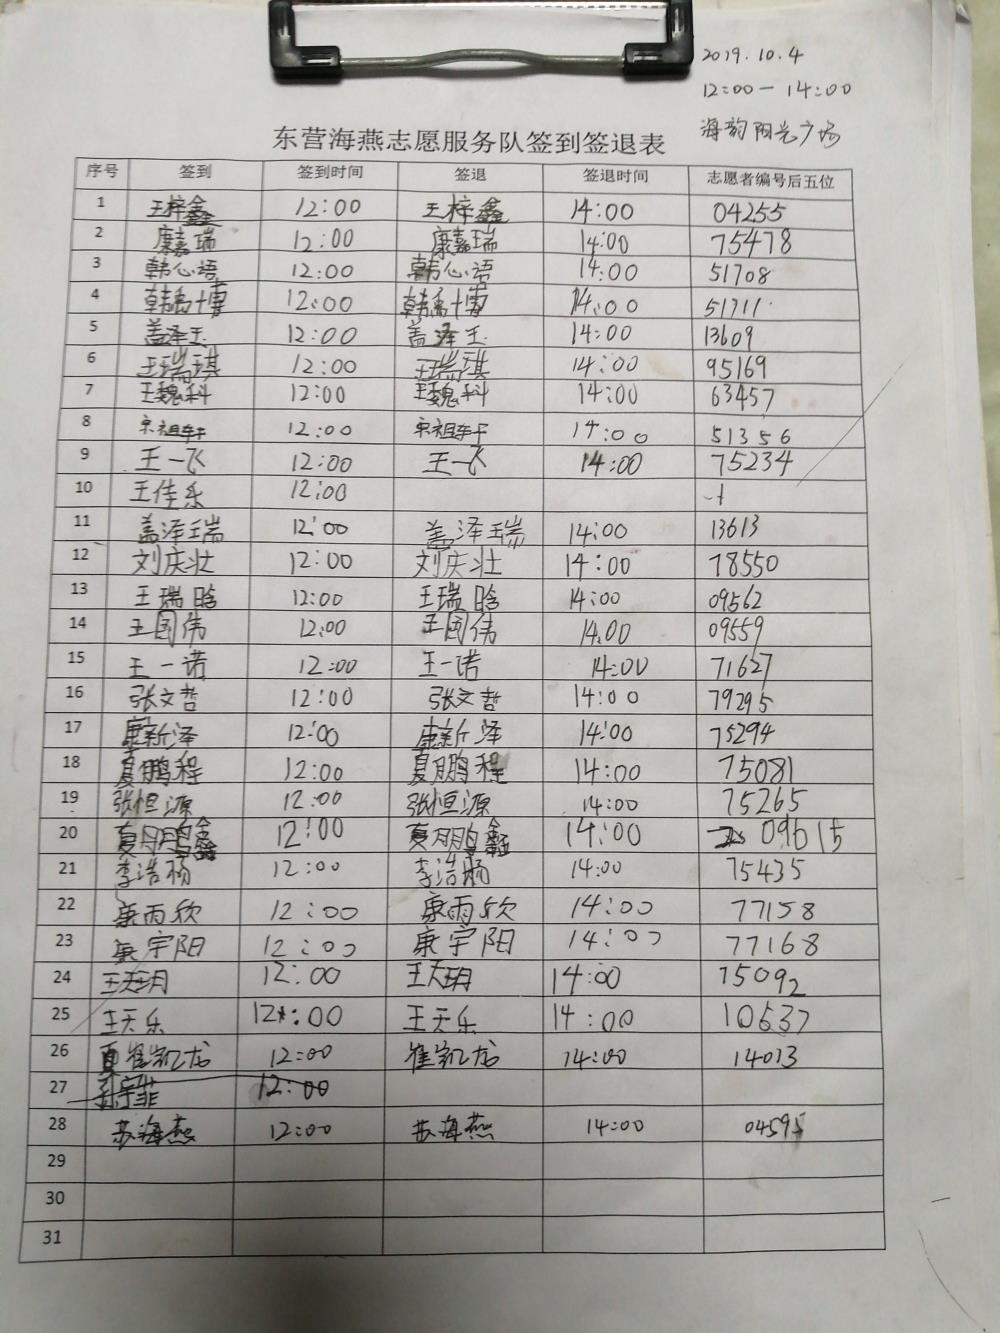 2019.10.4
12:00—14:00
海韵阳光广场
东营海燕志愿服务队签到签退表
序号 签到 签到时间 签退 签退时间 志愿者编号后五位
1 王梓鑫 12:00 王梓鑫 14:00 04255
2 康嘉瑞 12:00 康嘉瑞 14:00 75478
3 韩心语 12:00 韩心语 14:00 51708
4 韩禹博 12:00 韩禹博 14:00 51711
5 盖泽玉 12:00 盖泽玉 14:00 13609
6 王瑞琪 12:00 王瑞琪 14:00 95169
7 王魏科 12:00 王魏科 14:00 63457
8 宋祖轩 12:00 宋祖轩 14:00 51356
9 王一飞 12:00 王一飞 14:00 75234
10 王佳乐 12:00
11 盖泽瑞 12:00 盖泽瑞 14:00 13613
12 刘庆壮 12:00 刘庆壮 14:00 78550
13 王瑞晗 12:00 王瑞晗 14:00 09562
14 王国伟 12:00 王国伟 14:00 09559
15 王一诺 12:00 王一诺 14:00 71627
16 张文哲 12:00 张文哲 14:00 79295
17 康新泽 12:00 康新泽 14:00 75294
18 夏鹏程 12:00 夏鹏程 14:00 75081
19 张恒源 12:00 张恒源 14:00 75265
20 夏鹏鑫 12:00 夏鹏鑫 14:00 09615
21 李浩杨 12:00 李浩杨 14:00 75435
22 康雨欣 12:00 康雨欣 14:00 77158
23 康宇阳 12:00 康宇阳 14:00 77168
24 王天玥 12:00 王天玥 14:00 75092
25 王天乐 12:00 王天乐 14:00 10637
26 崔凯龙 12:00 崔凯龙 14:00 14013
27 12:00
28 苏海燕 12:00 苏海燕 14:00 04595
29
30
31